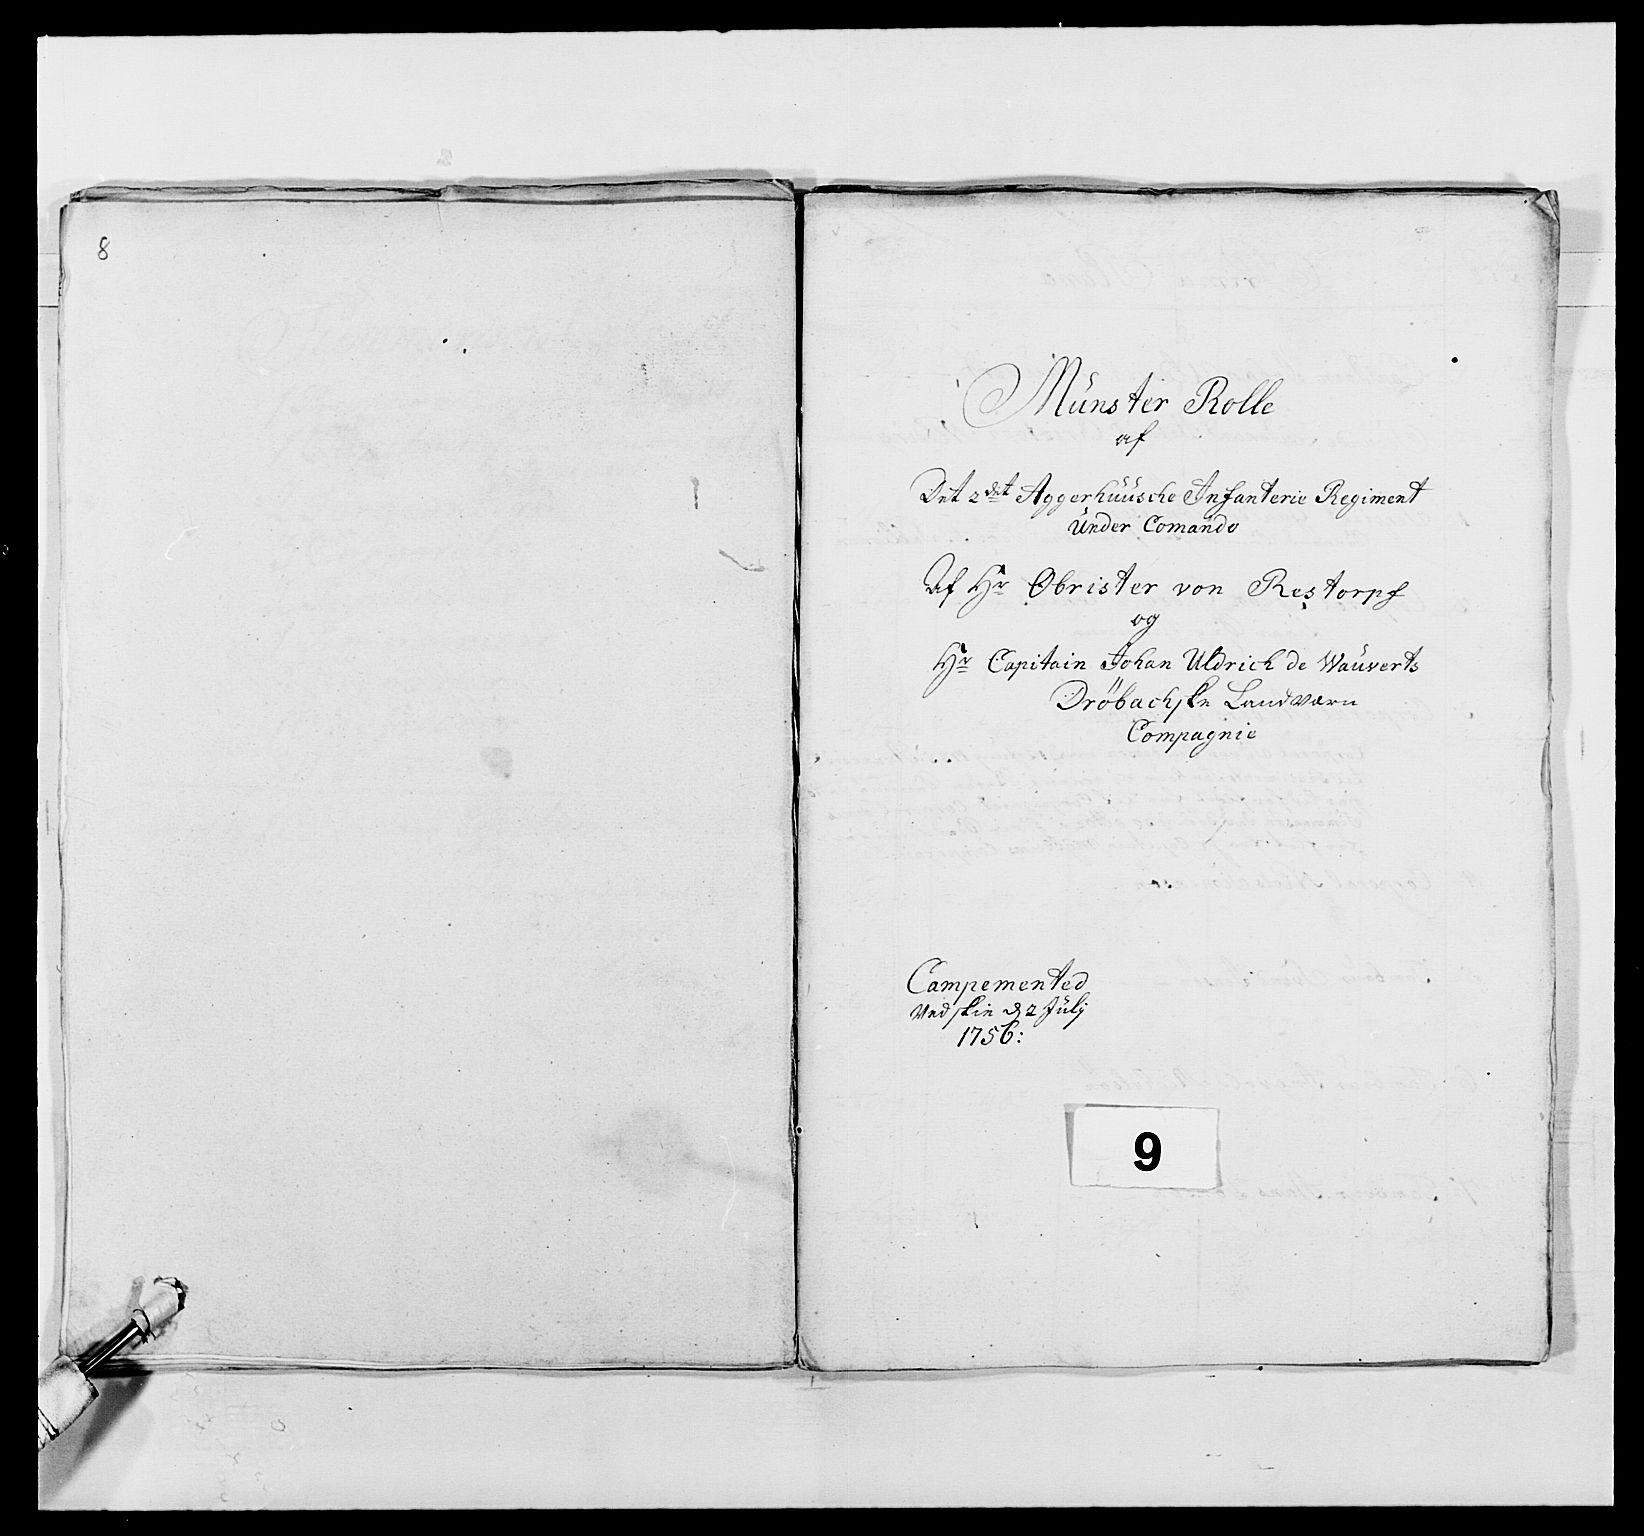 8
Münster Rolle
af
Det 2det Aggerhuusche Infanterie Regiment
Under Comando
Af Hr Obrister von Restorpf
og
Hr Capitain Johan Uldrich de Wauverts
Dröbachske Landværn
Compagnie
Campemented
Ved skie d 2 Julÿ
1756:
9